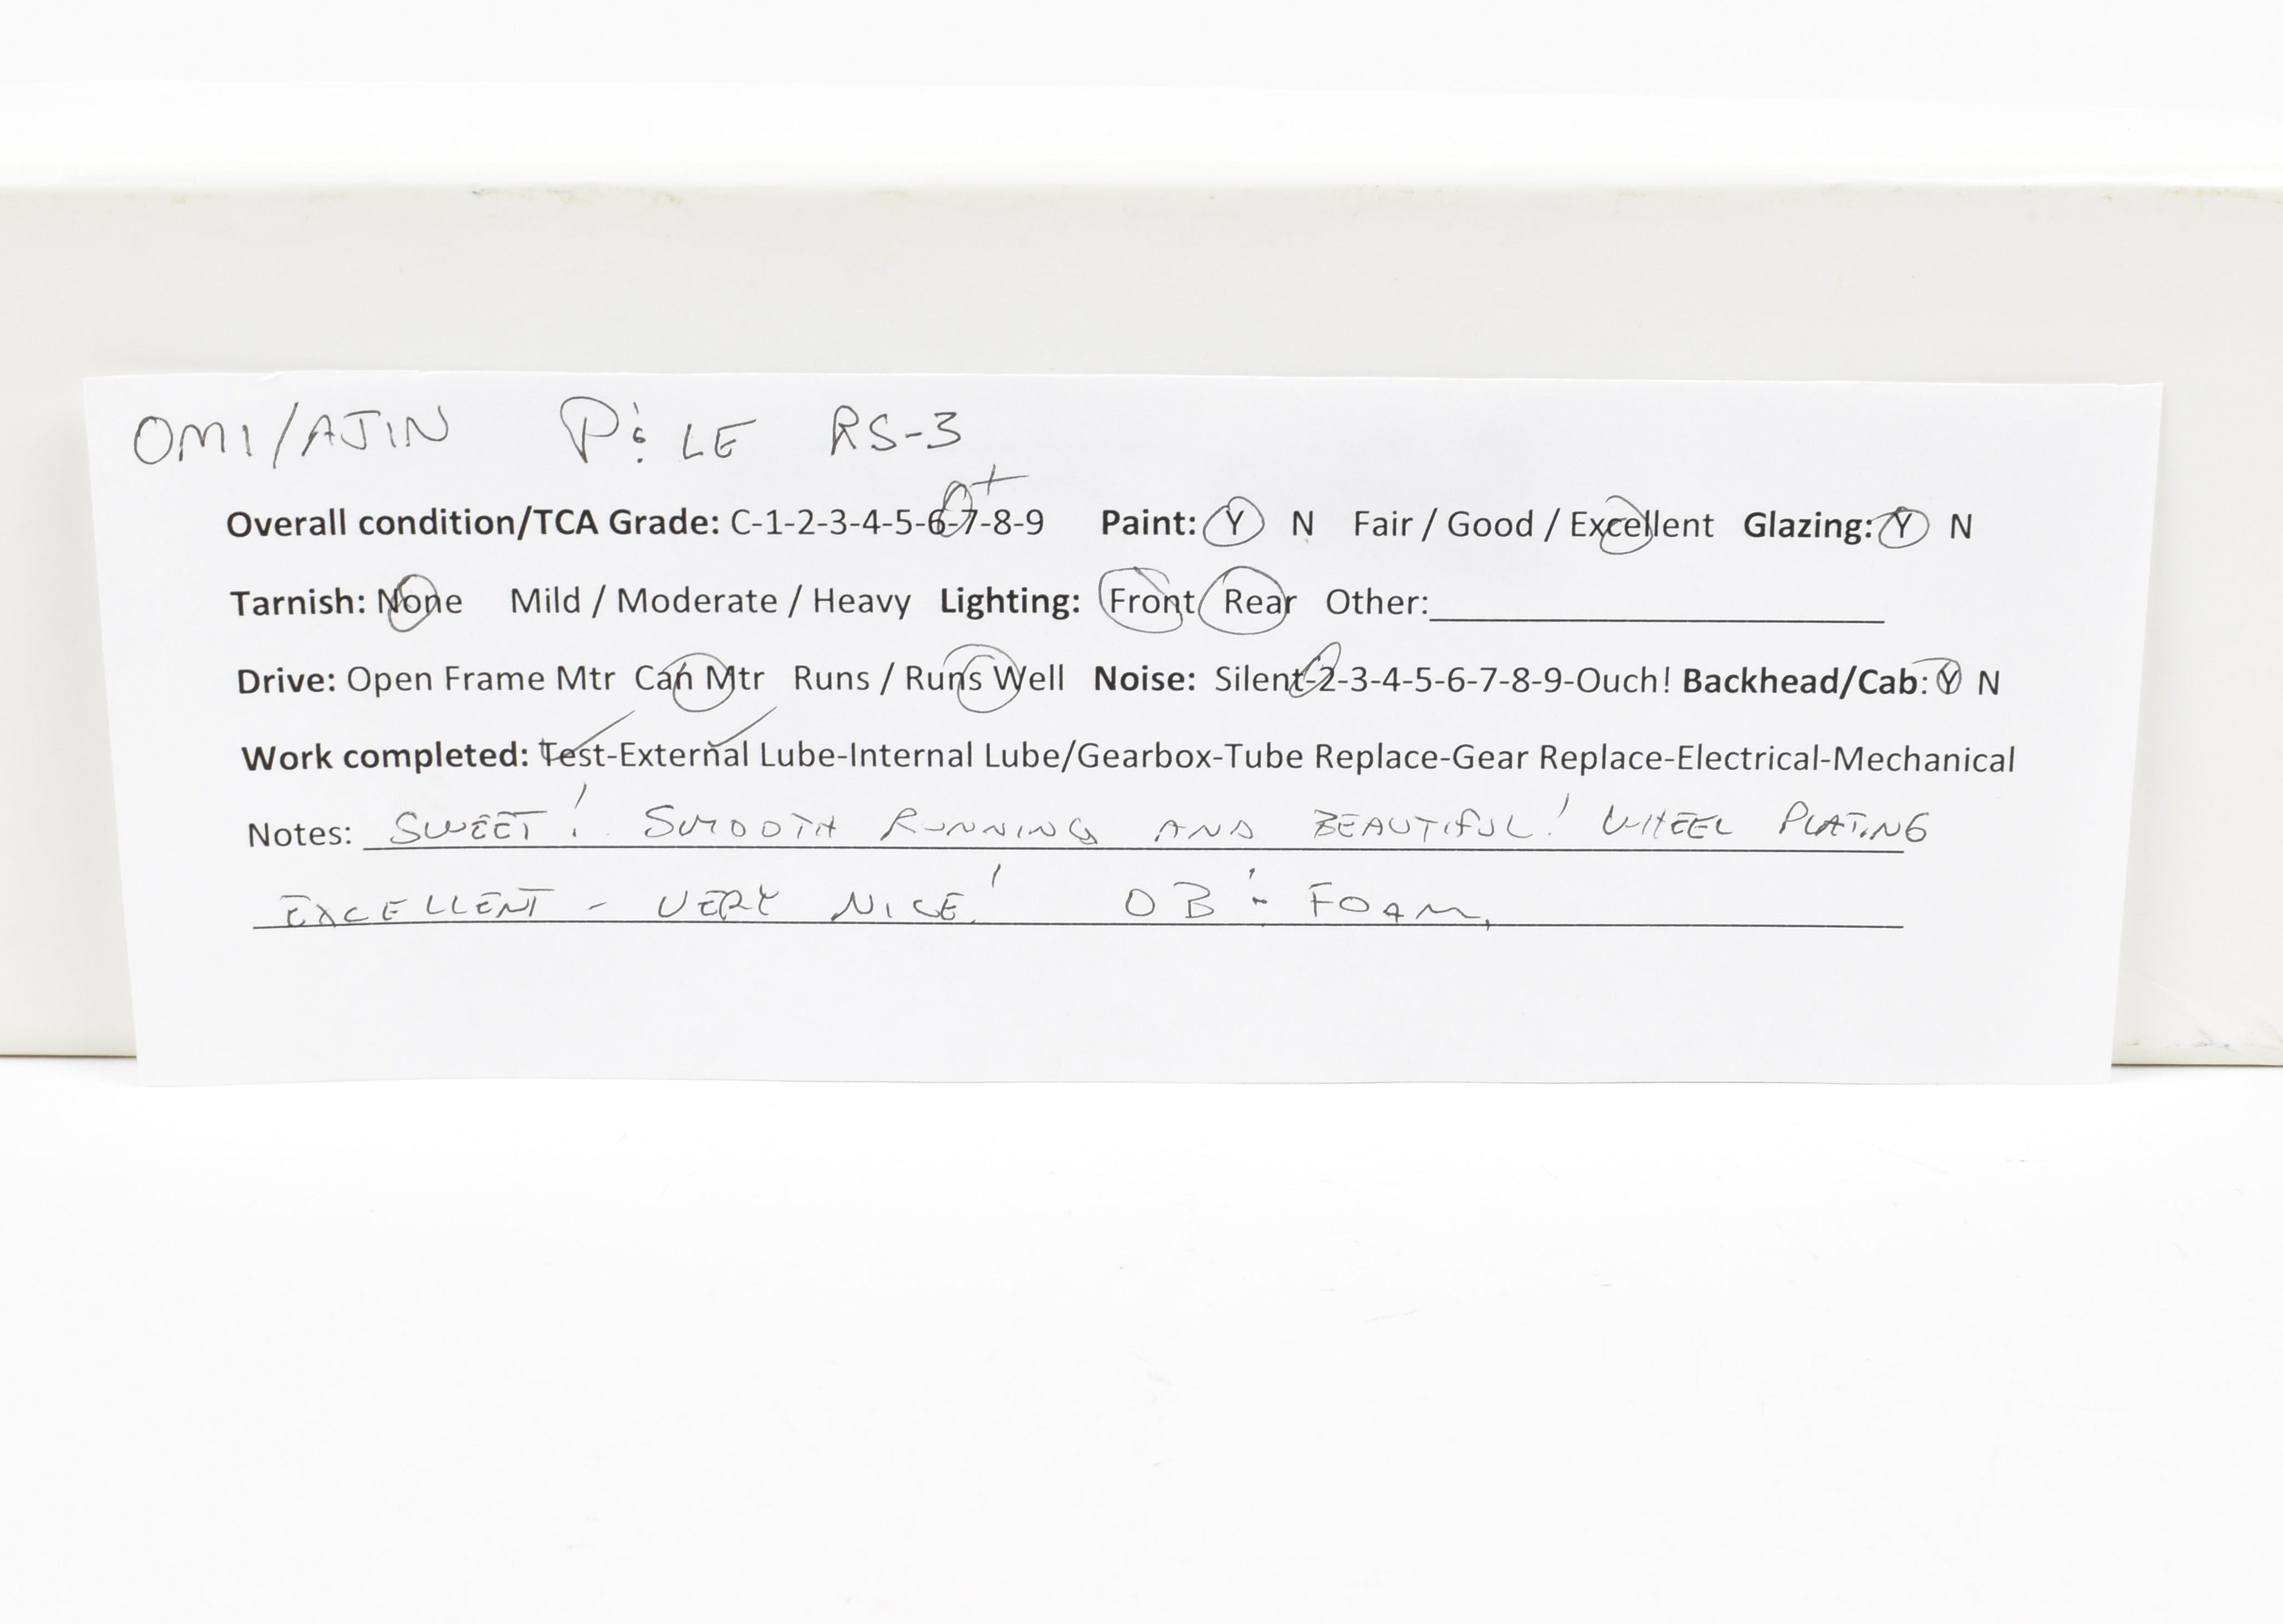 OMI/AJIN P&LE RS-3
+
Overall condition/TCA Grade: C-1-2-3-4-5-6-7-8-9 Paint: Y N Fair / Good / Excellent Glazing: Y N
Tarnish: None Mild / Moderate / Heavy Lighting: Front Rear Other:
Drive: Open Frame Mtr Can Mtr Runs / Runs Well Noise: Silent-2-3-4-5-6-7-8-9-Ouch! Backhead/Cab: Y N
Work completed: Test-External Lube-Internal Lube/Gearbox-Tube Replace-Gear Replace-Electrical-Mechanical
Notes: SWEET! SMOOTH RUNNING AND BEAUTIFUL! WHEEL PLATING
EXCELLENT - VERY NICE! OB & FOAM.